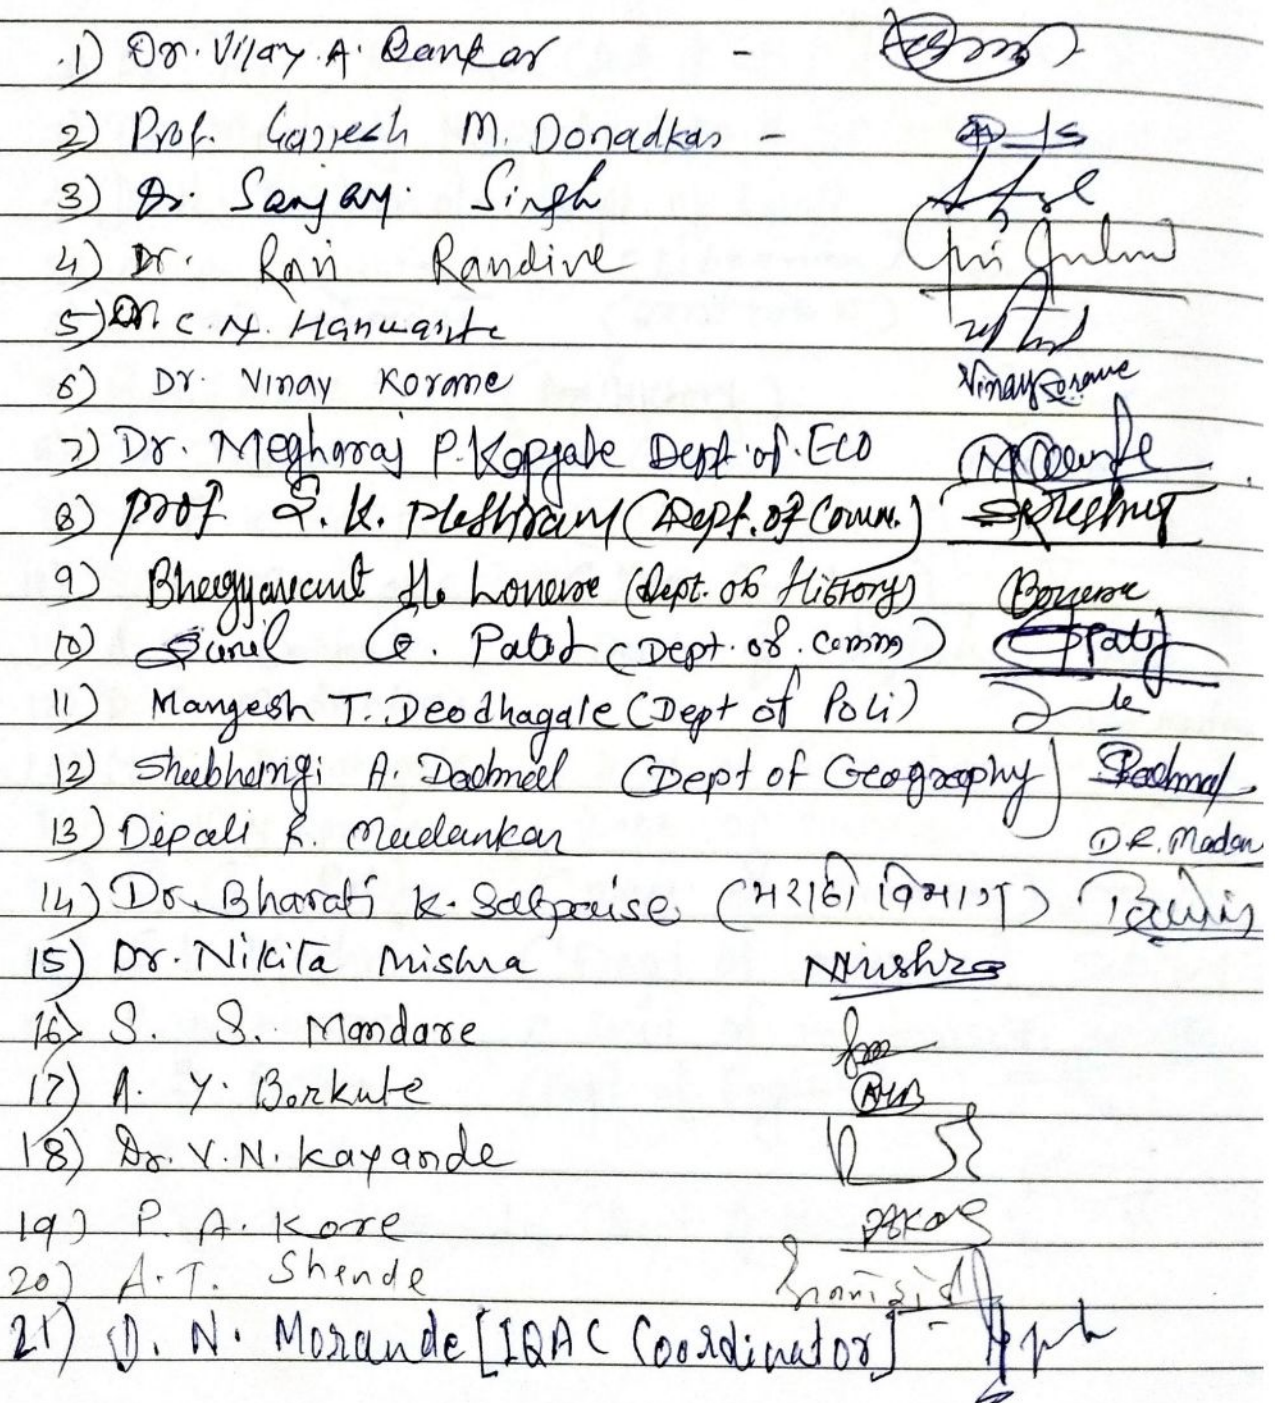 1) Dr. Vijay. A. Bankar -
2) Prof. Ganesh M. Donadkar -
3) Dr. Sanjay. Singh
4) Dr. Ravi Randive
5) Dr C. N. Hanwante
6) Dr. Vinay Korane Vinay Korane
7) Dr. Megharaj P. Kopgate Dept. of. ECO
8) Prof S. K. Meshram (Dept. of Comm.)
9) Bhagyawant H. Lonare (Dept. of History)
10) Sunil G. Patil (Dept. of. Comm) Patil
11) Mangesh T. Deodhagale (Dept of Poli)
12) Shubhangi A. Dadmal (Dept of Geography) Dadmal
13) Dipali R. Madankar D.R. Madan
14) Dr. Bharati K. Satpaise (मराठी विभाग)
15) Dr. Nikita Mishra NMishra
16) S. S. Mandare
17) A. Y. Borkute AYB
18) Dr. V. N. Kayande
19) P. A. Kore PAKore
20) A. T. Shende
21) D. N. Morande [IQAC Coordinator] -